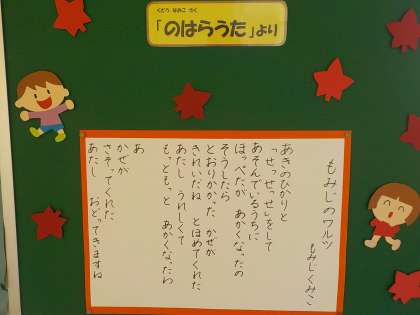 くどう なおこ さく
「のはらうた」より
もみじのワルツ
もみじくみこ
あきのひかりと
「せっせっせ」をして
あそんでいるうちに
ほっぺたが あかくなったの
そうしたら
とおりかかった かぜが
きれいだね とほめてくれた
あたし うれしくて
もっともっと あかくなったわ
あ
かぜが
さそってくれた
あたし おどってきますね